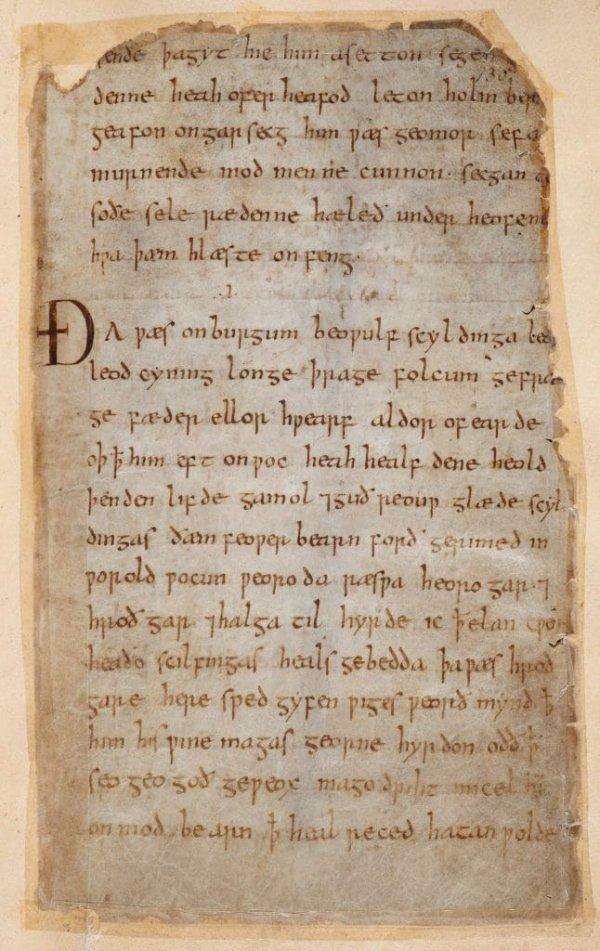 þagyt hie him asetton
denne heah ofer heafod leton holm
geafon ongarsecg him ƿæs geomor sefa
murnende mod men ne cunnon· secgan
soðe sele rædenne hæleð under
hƿa þæm hlæste onfeng·
·I·
ÐA ƿæs onburgum beoƿulf scyldinga
leod cyning longe þrage folcum gefræ
ge fæder ellor hƿearf aldor ofearde
oþꝥ him eft onƿoc heah healf dene heold
þenden lifde gamol ⁊guð reouƿ glæde scyl
dingas ðæm feoƿer bearn forð gerimed in
ƿorold ƿocun ƿeoroda ræsƿa heoro gar· ⁊
hroð gar ⁊halga til hyrde ic ꝥ elan
heaðo scilfingas heals gebedda þaƿæs hroð
gare here sped gyfen ƿiges ƿeorð mynd ꝥ
him his ƿine magas georne hyrdon oðð ꝥ
seo geogoð geƿeox mago driht micel
onmod bearn ꝥ heal reced hatan ƿolde